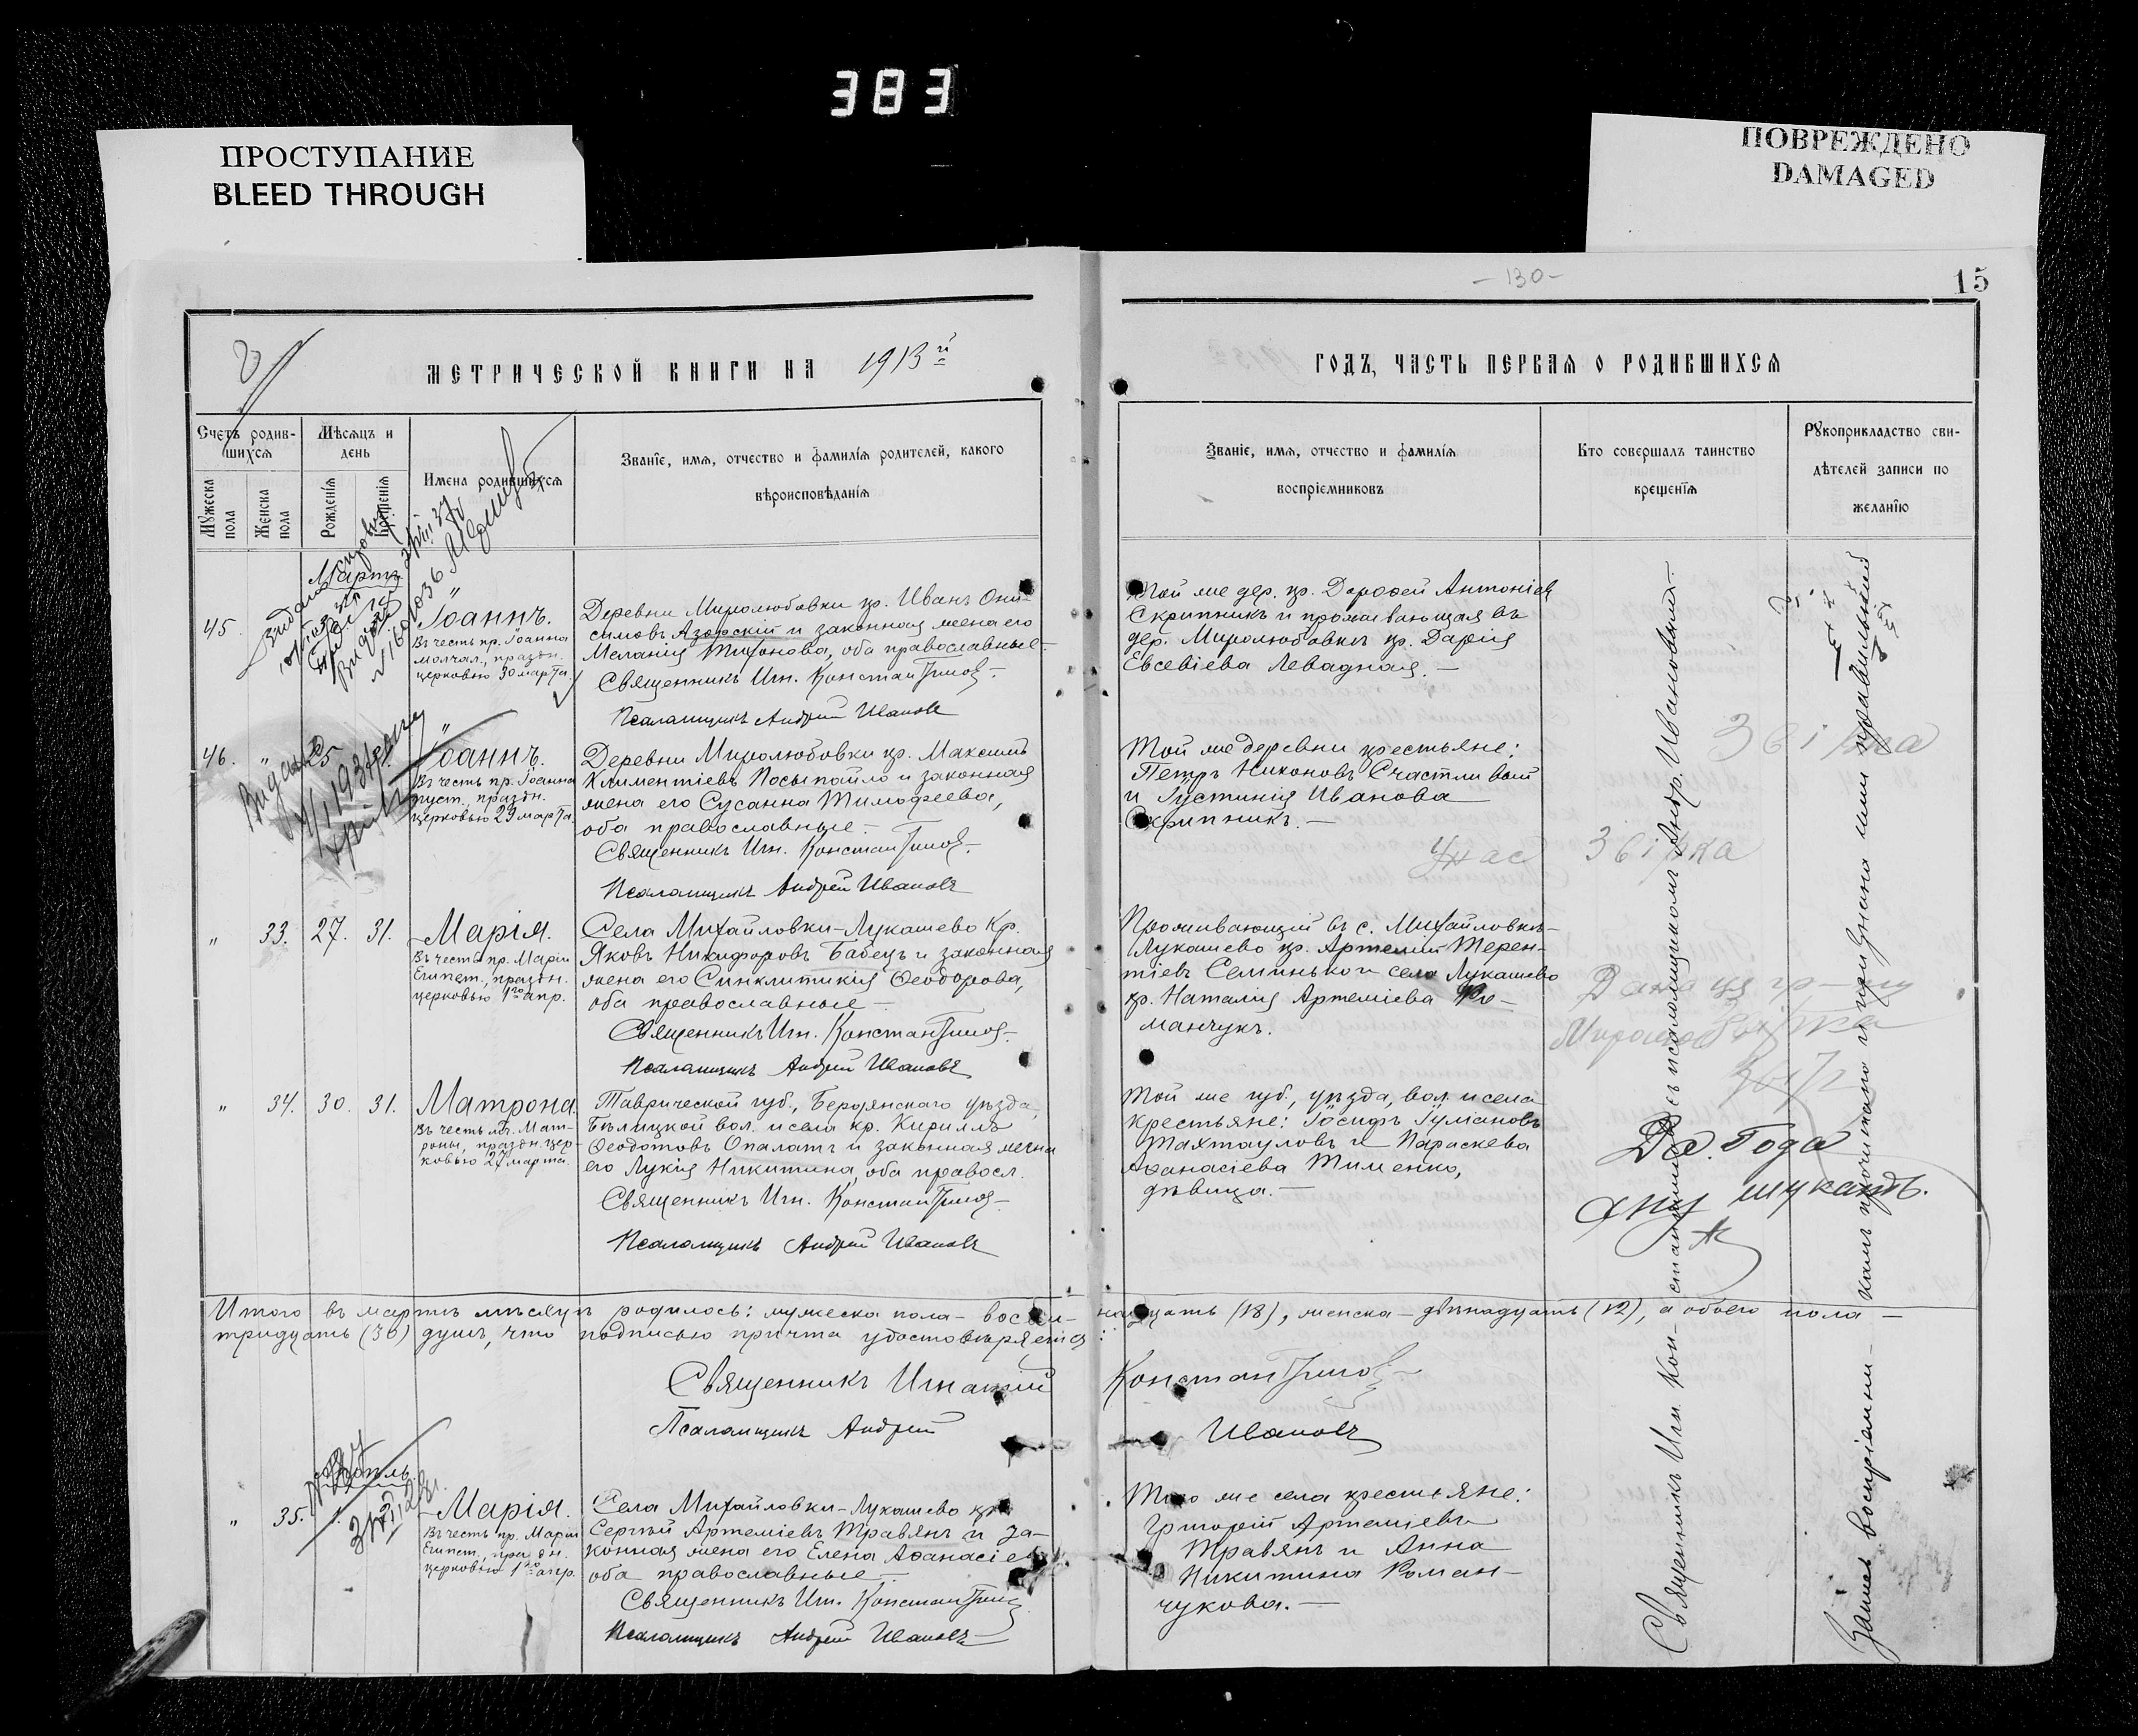 383
ПРОСТУПАНИЕ
BLEED THROUGH
ПОВРЕЖДЕНО
DAMAGED
- 130 -
15
МЕТРИЧЕСКОЙ КНИГИ НА 1913й
ГОДЪ, ЧАСТЬ ПЕРВАЯ О РОДИВШИХСЯ
Счетъ родив-
шихся
Мужеска пола
Женска пола
Мѣсяцъ и
день
Рожденія
Крещенія
Имена родившихся
Званїе, имя, отчество и фамилїя родителей, какого
вѣроисповѣданїя
Званїе, имя, отчество и фамилїя
воспрїемниковъ
Кто совершалъ таинство
крещенїя
Рукоприкладство сви-
дѣтелей записи по
желанїю
Мартъ
45.
Іоаннъ.
Въ честь пр. Іоанна
Молчал., праздн.
церковью 30 марта.
Деревни Миролюбовки кр. Иванъ Они-
симовъ Азовскій и законная жена его
Меланія Тихонова, оба православные.
Священникъ Игн. Константиновъ.
Псаломщикъ Андрей Ивановъ
Той же дер. кр. Дорофей Антоніевъ
Скрипникъ и проживающая въ
дер. Миролюбовкѣ кр. Дарія
Евсевіева Левадная.—
46. " 25
Іоаннъ.
Въ честь пр. Іоанна
пуст., праздн.
церковью 29 марта.
Деревни Миролюбовки кр. Максимъ
Климентіевъ Посыпайло и законная
жена его Сусанна Тимофеева,
оба православные.—
Священникъ Игн. Константиновъ.—
Псаломщикъ Андрей Ивановъ
Той же деревни крестьяне:
Петръ Никоновъ Счастливый
и Іустинія Иванова
Скрипникъ.—
" 33. 27. 31. Марія.
Въ честь пр. Маріи
Египет., праздн.
церковью 1го апр.
Села Михайловки-Лукашево Кр.
Яковъ Никифоровъ Бабецъ и законная
жена его Синклитикія Ѳеодорова,
оба православные —
Священникъ Игн. Константиновъ.—
Псаломщикъ Андрей Ивановъ
Проживающій въ с. Михайловкѣ-
Лукашево кр. Артемій Терен-
тіевъ Семинько и села Лукашево
кр. Наталія Артеміева Ро-
манчукъ.
" 34. 30. 31. Матрона.
Въ честь мч. Мат-
роны, праздн. цер-
ковью 27 марта.
Таврической губ., Бердянскаго уѣзда,
Бѣлицкой вол. и села кр. Кириллъ
Ѳеодотовъ Опалатъ и законная жена
его Лукія Никитина, оба правосл.
Священникъ Игн. Константиновъ—
Псаломщикъ Андрей Ивановъ
Той же губ., уѣзда, вол. и села
крестьяне: Іосифъ
Тахтауловъ и Параскева
Аѳанасіева Тименко,
дѣвица.—
Итого въ мартѣ мѣсяцѣ родилось: мужеска пола — восем-надцать (18), женска — двѣнадцать (12), а обоего пола —
тридцать (30) душъ, что подписью причта удостовѣряется:
Священникъ Игнатій Константиновъ.—
Псаломщикъ Андрей Ивановъ
" 35. Марія.
Въ честь пр. Маріи
Египет., праздн.
церковью 1го апр.
Села Михайловки-Лукашево кр.
Сергѣй Артеміевъ Травянъ и за-
конная жена его Елена Аѳанасіева
оба православные —
Священникъ Игн. Константиновъ
Псаломщикъ Андрей Ивановъ
Того же села крестьяне:
Григорій Артеміевъ
Травянъ и Анна
Никитина Роман-
чукова.—
Священникъ Игн. Кон-стантиновъ съ псаломщикомъ Андр. Ивановымъ.—